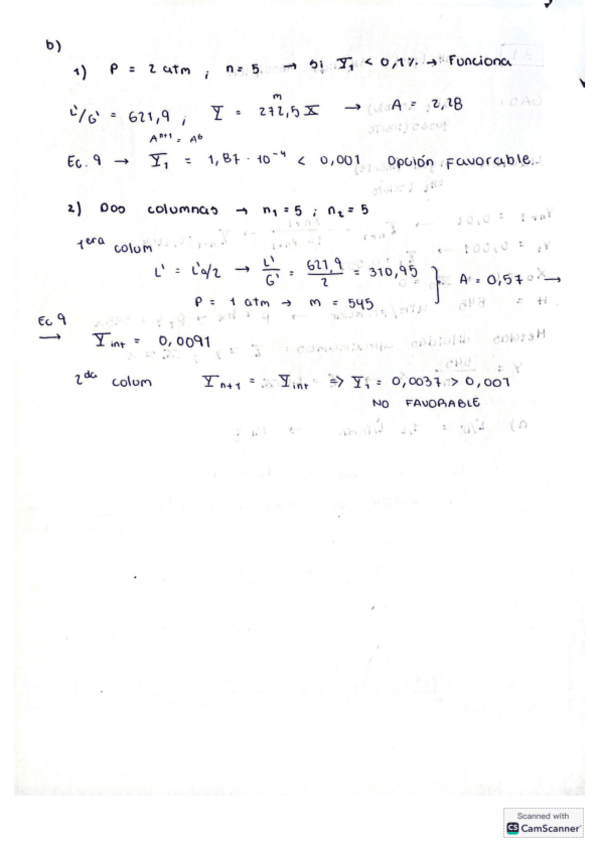 b)
1) P = 2 atm ; n = 5 → Si Y₁ < 0,1% → Funciona
L'/G' = 621,9 ; Y = 272,5 X → A = 2,28
m
Aⁿ⁺¹ = A⁶
Ec. 9 → Y₁ = 1,87 · 10⁻⁴ < 0,001 Opción Favorable
2) Dos columnas → n₁ = 5 ; n₂ = 5
1era colum
L' = L'a/2 → L'/G' = 621,9/2 = 310,95 } A = 0,57 →
P = 1 atm → m = 545
Ec 9
→ Y int = 0,0091
2da colum Y n+1 = Y int => Y₁ = 0,0037 > 0,001
NO FAVORABLE
Scanned with
CS CamScanner